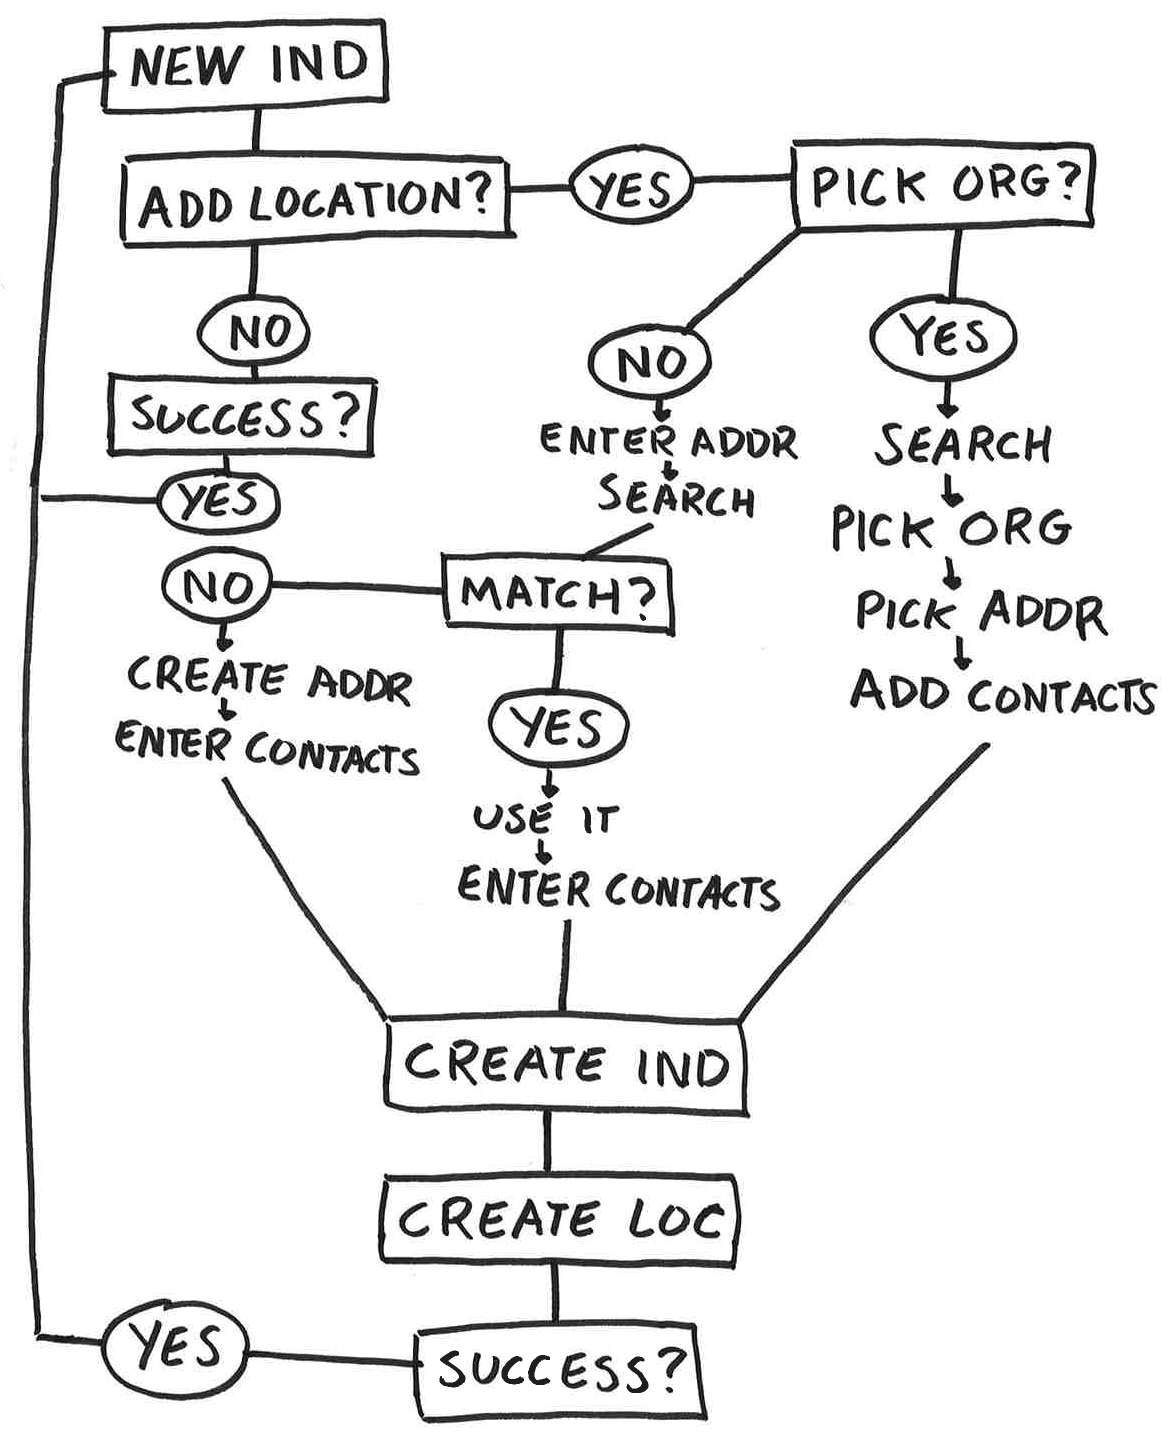 NEW IND
ADD LOCATION?
YES
PICK ORG?
NO
SUCCESS?
YES
NO
ENTER ADDR
SEARCH
YES
SEARCH
PICK ORG
PICK ADDR
ADD CONTACTS
MATCH?
NO
CREATE ADDR
ENTER CONTACTS
YES
USE IT
ENTER CONTACTS
CREATE IND
CREATE LOC
SUCCESS?
YES